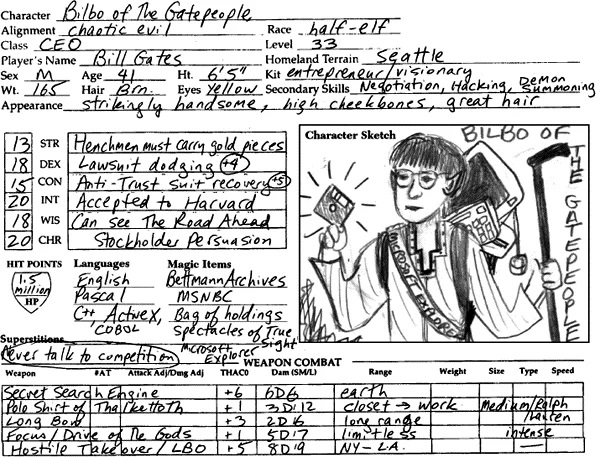 Character Bilbo of The Gatepeople
Alignment chaotic evil Race half-elf
Class CEO Level 33
Player's Name Bill Gates Homeland Terrain Seattle
Sex M Age 41 Ht. 6'5" Kit entrepreneur/visionary
Wt. 165 Hair Brn. Eyes Yellow Secondary Skills Negotiation, Hacking, Demon Summoning
Appearance strikingly handsome, high cheekbones, great hair
13 STR Henchmen must carry gold pieces
18 DEX Lawsuit dodging +4
15 CON Anti-Trust suit recovery +5
20 INT Accepted to Harvard
18 WIS Can see The Road Ahead
20 CHR Stockholder Persuasion
Character Sketch
BILBO OF
THE GATEPEOPLE
MICROSOFT EXPLORER
HIT POINTS
1.5 million HP
Languages
English
Pascal
C++ ActiveX,
COBOL
Magic Items
Bettmann Archives
MSNBC
Bag of holdings
Spectacles of True Sight
Microsoft Explorer
Superstitions
Never talk to competition
WEAPON COMBAT
Weapon #AT Attack Adj/Dmg Adj THAC0 Dam (SM/L) Range Weight Size Type Speed
Secret Search Engine +6 6D6 earth
Polo Shirt of +1 3D12 closet → work Medium/Ralph Lauren
Long Bow +3 2D16 long range
Focus/Drive of The Gods +1 5D17 limitless intense
Hostile Takeover/LBO +5 8D19 NY-L.A. —